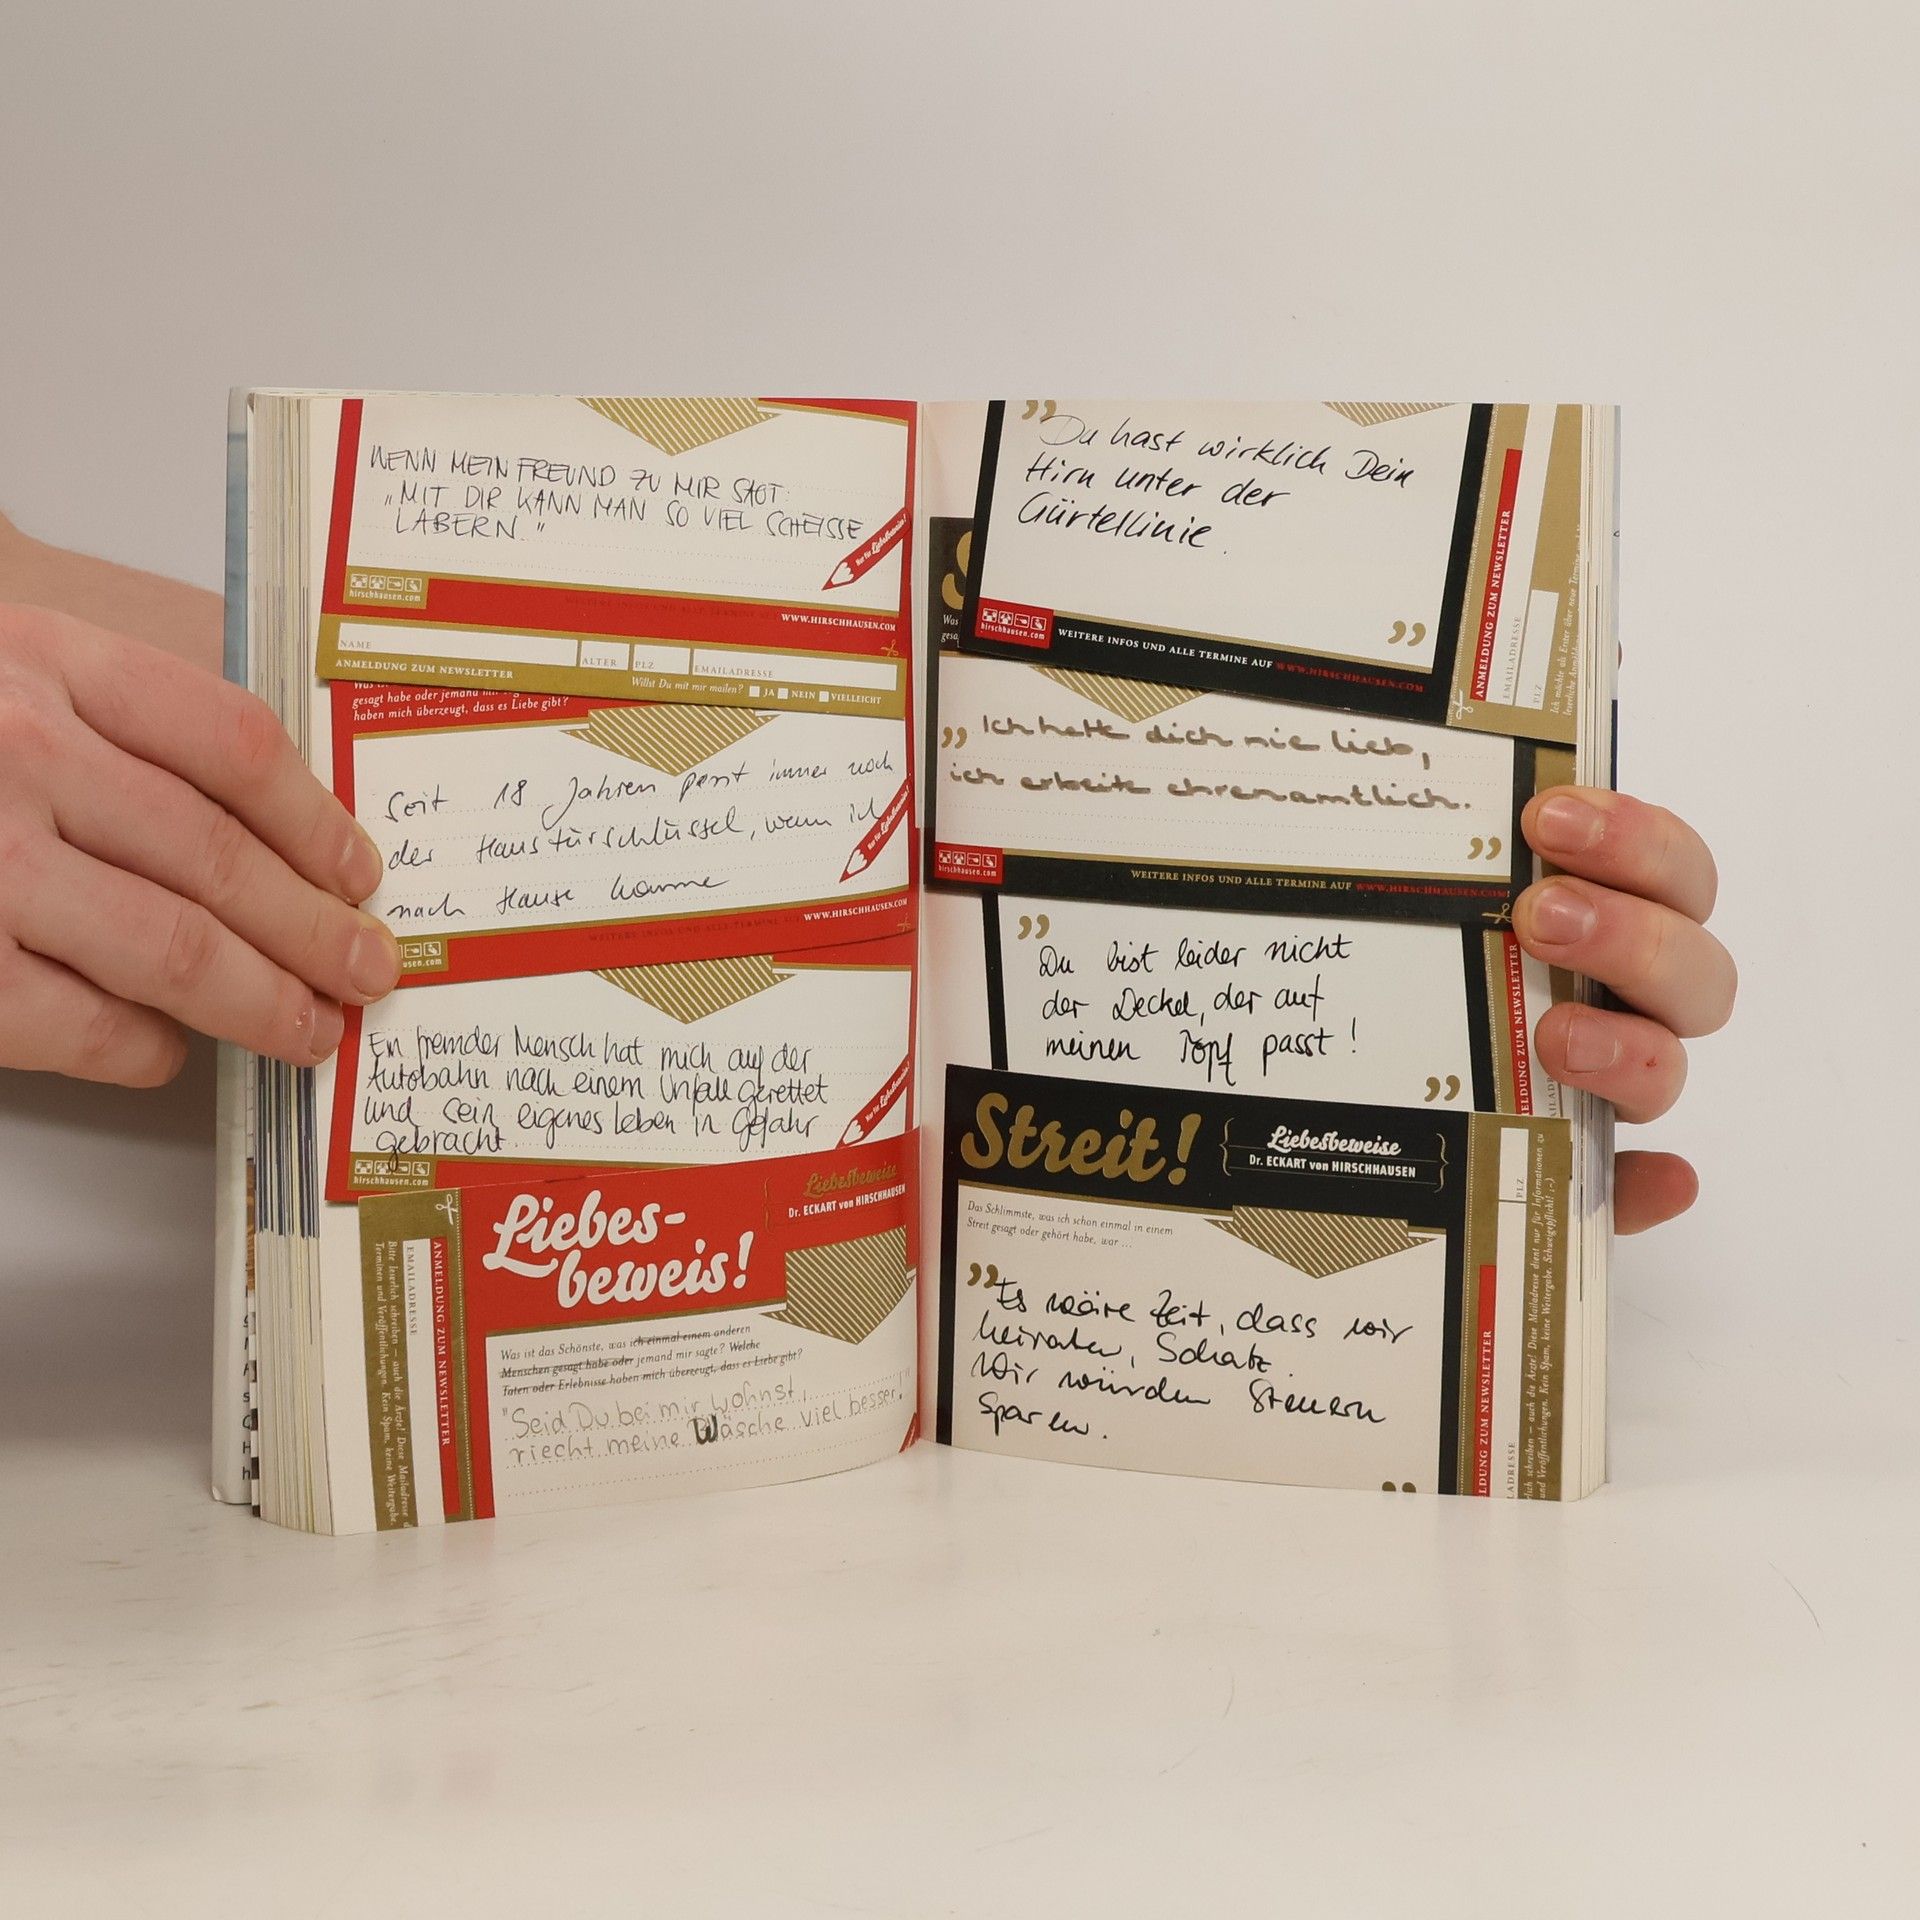 WENN MEIN FREUND ZU MIR SAGT:
„MIT DIR KANN MAN SO VIEL SCHEISSE
LABERN."
Nur für Liebesbeweise!
hirschhausen.com
WEITERE INFOS UND ALLE TERMINE
WWW.HIRSCHHAUSEN.COM
NAME
ALTER
PLZ
EMAILADRESSE
ANMELDUNG ZUM NEWSLETTER
Willst Du mit mir mailen? JA NEIN VIELLEICHT
gesagt habe oder jemand mir
haben mich überzeugt, dass es Liebe gibt?
Seit 18 Jahren passt immer noch
der Haustürschlüssel, wenn ich
nach Hause komme
Nur für Liebesbeweise!
usen.com
WEITERE INFOS UND ALLE TERMINE
WWW.HIRSCHHAUSEN.COM
Ein fremder Mensch hat mich auf der
Autobahn nach einem Unfall gerettet
und sein eigenes Leben in Gefahr
gebracht.
Nur für Liebesbeweise!
hirschhausen.com
Liebes-
beweis!
Liebesbeweise
Dr. ECKART von HIRSCHHAUSEN
Was ist das Schönste, was ich einmal einem anderen
Menschen gesagt habe oder jemand mir sagte? Welche
Taten oder Erlebnisse haben mich überzeugt, dass es Liebe gibt?
"Seid Du bei mir wohnst,
riecht meine Wäsche viel besser!"
ANMELDUNG ZUM NEWSLETTER
EMAILADRESSE
Bitte leserlich schreiben – auch die Ärzte! Diese Mailadresse
Terminen und Veröffentlichungen. Kein Spam, keine Weitergabe.
„Du hast wirklich Dein
Hirn unter der
Gürtellinie.
”
hirschhausen.com
WEITERE INFOS UND ALLE TERMINE AUF WWW.HIRSCHHAUSEN.COM
ANMELDUNG ZUM NEWSLETTER
EMAILADRESSE
PLZ
Ich möchte als Erster über neue
S
Was
gesa
„Ich hatte dich nie lieb,
ich arbeite ehrenamtlich.
”
hirschhausen.com
WEITERE INFOS UND ALLE TERMINE AUF WWW.HIRSCHHAUSEN.COM
„Du bist leider nicht
der Deckel, der auf
meinen Topf passt!
”
ELDUNG ZUM NEWSLETTER
Streit!
Liebesbeweise
Dr. ECKART von HIRSCHHAUSEN
Das Schlimmste, was ich schon einmal in einem
Streit gesagt oder gehört habe, war ...
„Es wäre Zeit, dass wir
heiraten, Schatz.
Wir würden Steuern
sparen.
”
LDUNG ZUM NEWSLETTER
LADRESSE
PLZ
lich schreiben – auch die Ärzte! Diese Mailadresse dient nur für Informationen zu
und Veröffentlichungen. Kein Spam, keine Weitergabe. Schweigepflicht! ;-)